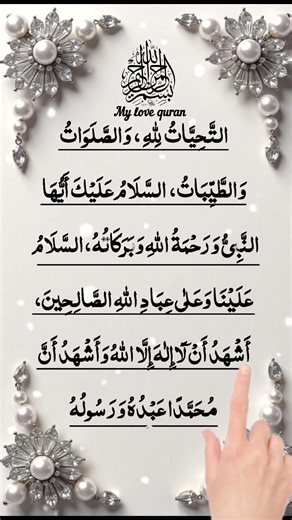 بسم الله الرحمن الرحيم
My love quran
التَّحِيَّاتُ لِلّٰهِ، وَالصَّلَوَاتُ
وَالطَّيِّبَاتُ، السَّلَامُ عَلَيْكَ أَيُّهَا
النَّبِيُّ وَرَحْمَةُ اللهِ وَبَرَكَاتُهُ، السَّلَامُ
عَلَيْنَا وَعَلٰى عِبَادِ اللهِ الصَّالِحِينَ،
أَشْهَدُ أَنْ لَّا إِلٰهَ إِلَّا اللهُ وَأَشْهَدُ أَنَّ
مُحَمَّدًا عَبْدُهُ وَرَسُولُهُ